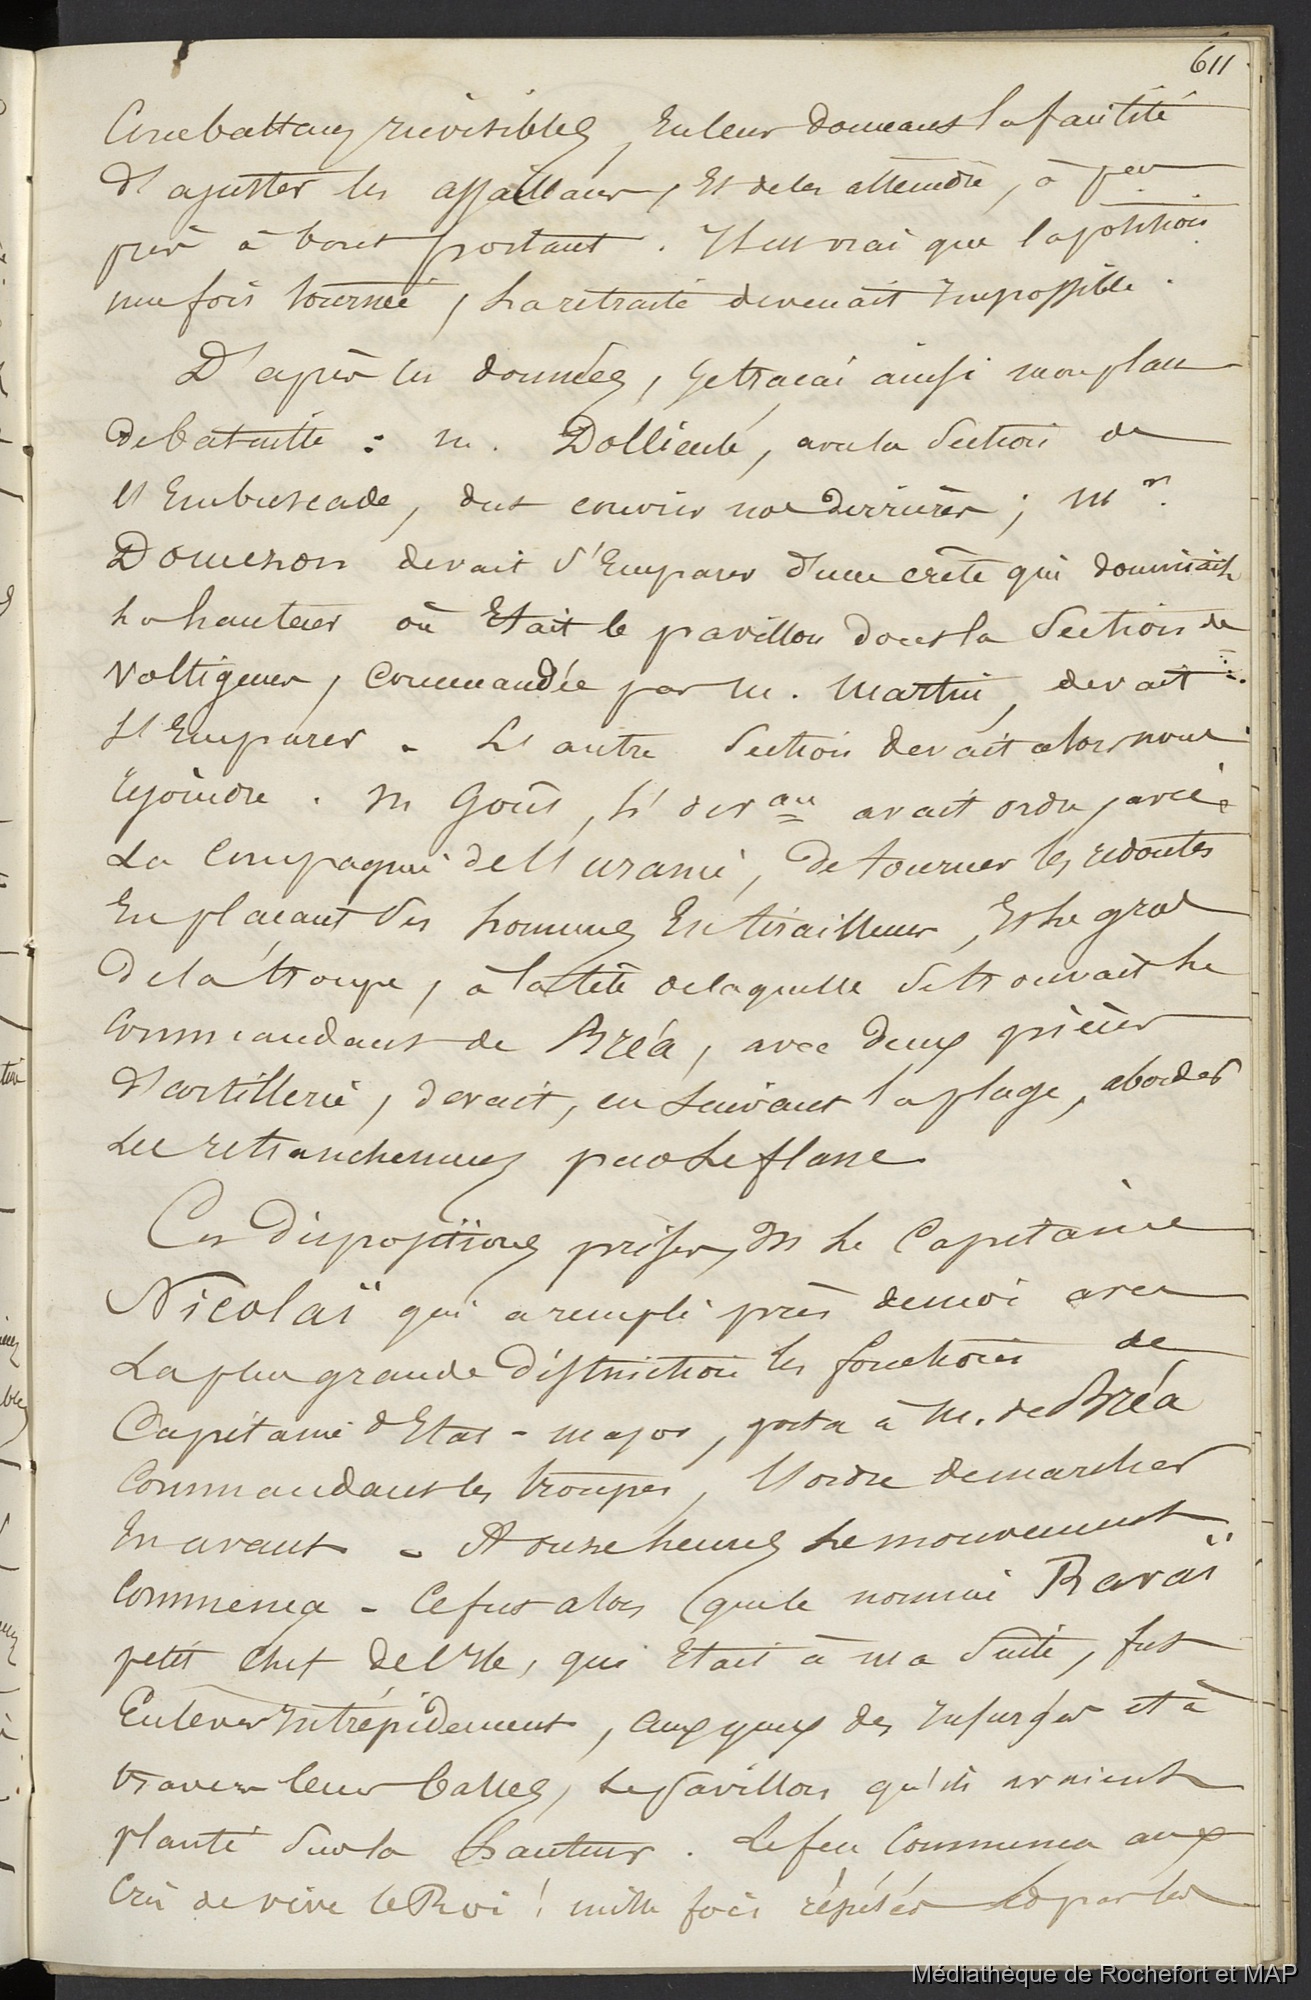 611
Combattans invisibles, en leur donnant la facilité
d'ajuster les assaillans, et de les atteindre, à peu
près à bout portant. Il est vrai que la position
une fois tournée, la retraite devenait impossible.
D'après ces données, je traçai ainsi mon plan
de bataille : M. Dollieule, avec la section de
l'Embuscade, dut couvrir nos derrières ; Mr.
Domezon devait s'emparer d'une crête qui dominait
la hauteur où était le pavillon dont la section de
Voltigeurs, commandée par M. Martin, devait
s'emparer. L'autre section devait alors nous
rejoindre. M Goût, lt de vau avait ordre, avec
la compagnie de l'Uranie, de tourner les redoutes
en plaçant des hommes en tirailleurs, et le gros
de la troupe, à la tête de laquelle se trouvait le
Commandant de Bréa, avec deux pièces
d'artillerie, devait, en suivant la plage, aborder
les retranchemens par le flanc
Ces dispositions prises, M le Capitaine
Nicolaï qui a rempli près de moi avec
la plus grande distinction les fonctions de
Capitaine d'Etat-major, porta à M. de Bréa
Commandant les troupes, l'ordre de marcher
en avant. A onze heures le mouvement
commença. Ce fut alors que le nommé Bavaï
petit chef de l'île, qui était à ma suite, fut
enlever intrépidement, aux yeux des insurgés et à
travers leurs balles, le pavillon qu'ils avaient
planté sur la hauteur. Le feu commença aux
cris de vive le Roi ! mille fois répétés et par les
Médiathèque de Rochefort et MAP